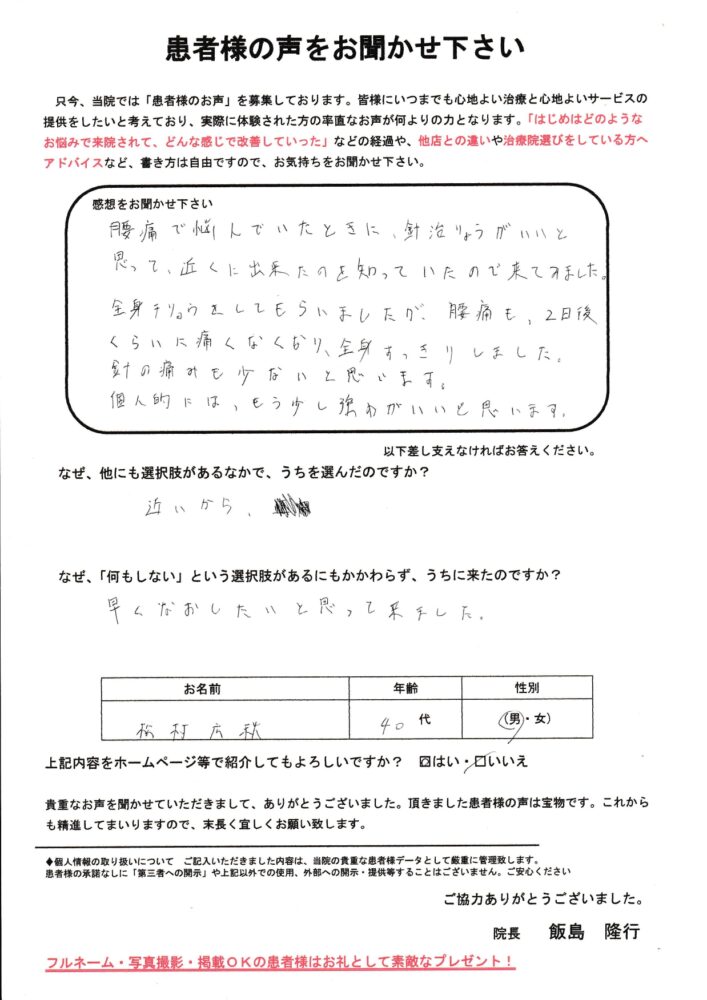 患者様の声をお聞かせ下さい
只今、当院では「患者様のお声」を募集しております。皆様にいつまでも心地よい治療と心地よいサービスの
提供をしたいと考えており、実際に体験された方の率直なお声が何よりの力となります。「はじめはどのような
お悩みで来院されて、どんな感じで改善していった」などの経過や、他店との違いや治療院選びをしている方へ
アドバイスなど、書き方は自由ですので、お気持ちをお聞かせ下さい。
感想をお聞かせ下さい
腰痛で悩んでいたときに、針治りょうがいいと
思って、近くに出来たのを知っていたので来てみました。
全身チりょうをしてもらいましたが、腰痛も、2日後
くらいに痛くなくなり、全身すっきりしました。
針の痛みも少ないと思います。
個人的には、もう少し強わがいいと思います。
以下差し支えなければお答えください。
なぜ、他にも選択肢があるなかで、うちを選んだのですか？
近いから、
なぜ、「何もしない」という選択肢があるにもかかわらず、うちに来たのですか？
早くなおしたいと思って来ました。
お名前 年齢 性別
松村広 40代 (男・女)
上記内容をホームページ等で紹介してもよろしいですか？ ☑はい・□いいえ
貴重なお声を聞かせていただきまして、ありがとうございました。頂きました患者様の声は宝物です。これから
も精進してまいりますので、末長く宜しくお願い致します。
◆個人情報の取り扱いについて ご記入いただきました内容は、当院の貴重な患者様データとして厳重に管理致します。
患者様の承諾なしに「第三者への開示」や上記以外での使用、外部への開示・提供等することはございません。ご安心ください
ご協力ありがとうございました。
院長 飯島 隆行
フルネーム・写真撮影・掲載ＯＫの患者様はお礼として素敵なプレゼント！